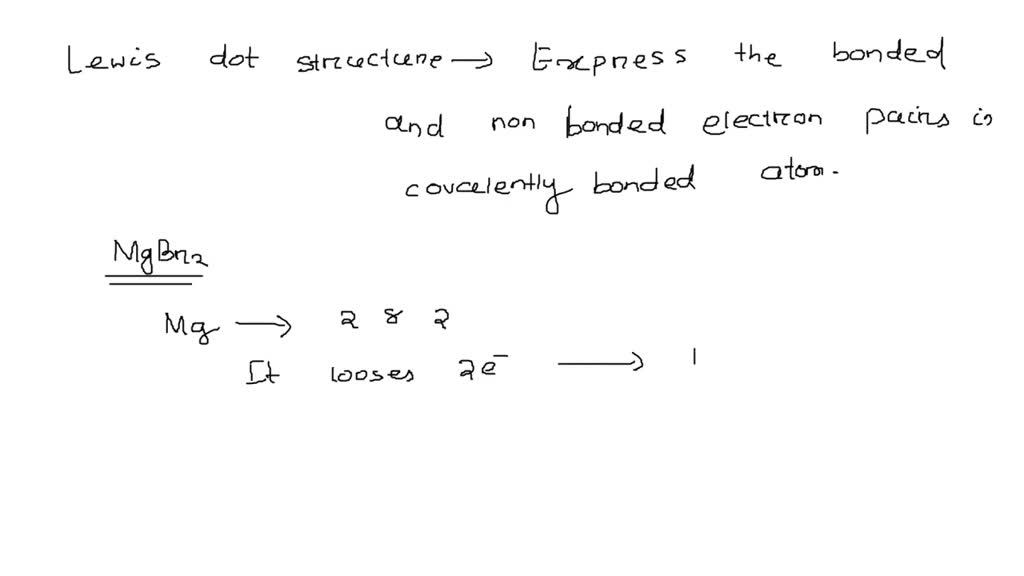 Lewis dot structure → Express the bonded
and non bonded electron pairs is
covalently bonded atom.
MgBr2
Mg → 2 8 2
It looses 2e⁻ →